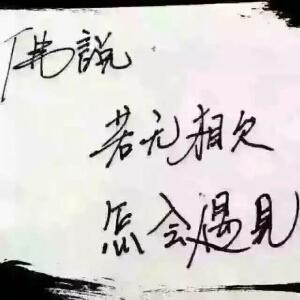 佛説
若无相欠
怎会遇見